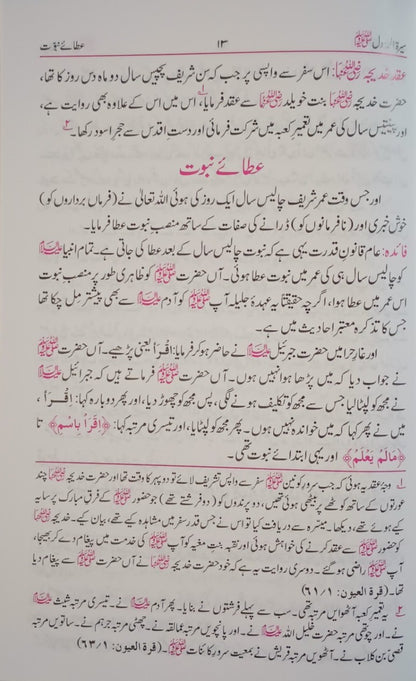 سیرۃ الرسول ﷺ ۱۳ عطائے نبوت
عقد خدیجہ رضی اللہ عنہا: اس سفر سے واپسی پر جب کہ سن شریف پچیس سال دو ماہ دس روز کا تھا،
حضرت خدیجہ رضی اللہ عنہا بنت خویلد رضی اللہ عنہا سے عقد فرمایا،۱ اس میں اس کے علاوہ بھی روایت ہے،
اور پینتیس سال کی عمر میں تعمیر کعبہ میں شرکت فرمائی اور دست اقدس سے حجر اسود رکھا۔۲
عطائے نبوت
اور جس وقت عمر شریف چالیس سال ایک روز کی ہوئی اللہ تعالیٰ نے (فرماں برداروں کو)
خوش خبری اور (نافرمانوں کو) ڈرانے کی صفات کے ساتھ منصب نبوت عطا فرمایا۔
فائدہ: عام قانون قدرت یہی ہے کہ نبوت چالیس سال کے بعد عطا کی جاتی ہے۔ تمام انبیا علیہم السلام
کو چالیس سال ہی کی عمر میں نبوت عطا ہوئی۔ آں حضرت ﷺ کو ظاہری طور پر منصب نبوت
اس عمر میں عطا ہوا، اگرچہ حقیقتاً یہ عہدۂ جلیلہ آپ ﷺ کو آدم علیہ السلام سے بھی پیشتر مل چکا تھا
جس کا تذکرہ معتبر احادیث میں ہے۔
اور غار حرا میں حضرت جبرئیل علیہ السلام نے حاضر ہو کر فرمایا: اِقْرَأْ یعنی پڑھیے۔ آں حضرت ﷺ
نے جواب دیا کہ میں پڑھا ہوا نہیں ہوں۔ آں حضرت ﷺ فرماتے ہیں کہ جبرئیل علیہ السلام
نے مجھ کو لپٹا لیا جس سے مجھ کو تکلیف ہونے لگی، پس مجھ کو چھوڑ دیا، اور پھر دوبارہ کہا: اِقْرَأْ،
میں نے پھر کہا کہ میں خواندہ نہیں ہوں۔ پھر مجھ کو لپٹایا، اور تیسری مرتبہ کہا: ﴿اِقْرَأْ بِاسْمِ﴾ تا
﴿مَا لَمْ يَعْلَمْ﴾ اور یہی ابتدائے نبوت تھی۔
۱ وجہ عقد یہ ہوئی کہ جب سرور کونین ﷺ سفر سے واپس تشریف لائے تو دوپہر کا وقت تھا اور حضرت خدیجہ رضی اللہ عنہا چند
عورتوں کے ساتھ کوٹھے پر بیٹھی ہوئی تھیں، دو پرندوں کو (دو فرشتے تھے) جو حضور ﷺ کے فرق مبارک پر سایہ
کیے ہوئے تھے، دیکھا۔ میسرہ سے دریافت کیا تو اس نے جس قدر سفر میں مشاہدہ کیے تھے، بیان کیے۔ خدیجہ رضی اللہ عنہا
کو حضور ﷺ سے عقد کرنے کی خواہش ہوئی اور نفیسہ بنت منیہ کو آپ ﷺ کی خدمت میں پیغام دے کر بھیجا،
آپ ﷺ راضی ہو گئے۔ دوسری روایت یہ ہے کہ خود حضرت خدیجہ رضی اللہ عنہا نے آں حضرت ﷺ سے پیغام دیا
تھا۔ (قرة العیون: ۶۱/۱)
۲ یہ تعمیر کعبہ آٹھویں مرتبہ تھی۔ سب سے پہلے فرشتوں نے بنایا۔ پھر آدم علیہ السلام نے۔ تیسری مرتبہ شیث علیہ السلام
نے۔ اور چوتھی مرتبہ حضرت خلیل اللہ علیہ السلام نے۔ اور پانچویں مرتبہ عمالقہ نے۔ چھٹی مرتبہ جرہم نے۔ ساتویں مرتبہ
قصی بن کلاب نے۔ آٹھویں مرتبہ قریش نے بمعیت سرور کائنات ﷺ۔ (قرة العیون: ۶۳/۱)